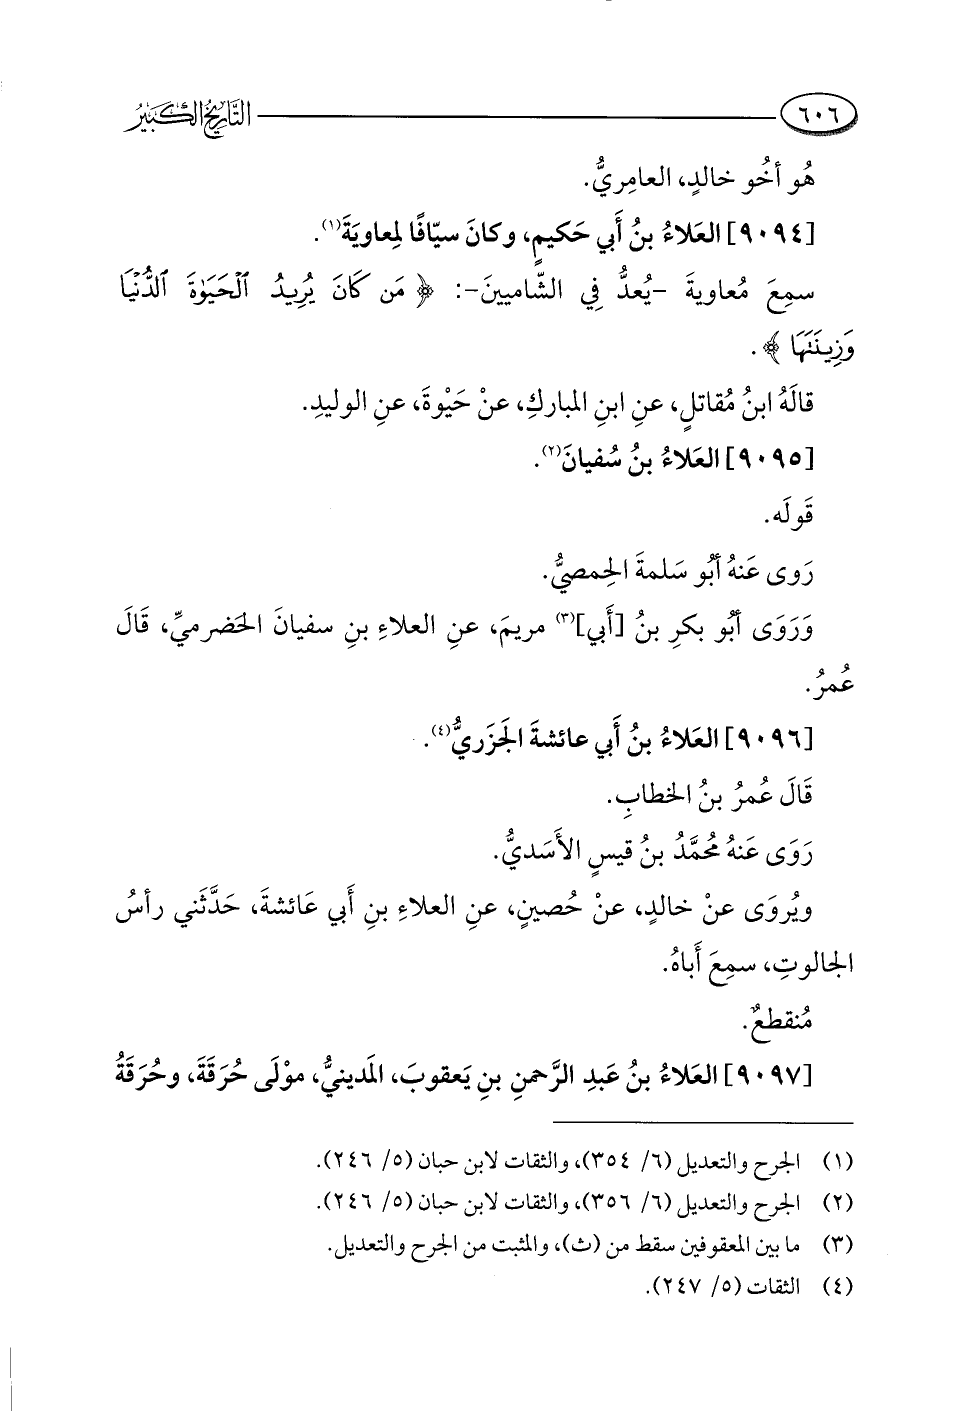 ٦٠٦ التَّارِيخُ الكَبِيرُ
هُو أخُو خالدٍ، العامِريُّ.
[٩٠٩٤] العَلاءُ بنُ أَبي حَكيمٍ، وكانَ سيّافًا لِمعاويَةَ(١).
سمِعَ مُعاويةَ -يُعدُّ فِي الشّاميينَ-: ﴿ مَن كَانَ يُرِيدُ ٱلْحَيَوٰةَ ٱلدُّنْيَا
وَزِينَتَهَا ﴾.
قالَهُ ابنُ مُقاتلٍ، عنِ ابنِ المباركِ، عنْ حَيْوةَ، عنِ الوليدِ.
[٩٠٩٥] العَلاءُ بنُ سُفيانَ(٢).
قَولَه.
رَوى عَنهُ أَبُو سَلمةَ الحِمصيُّ.
وَرَوَى أَبُو بكرِ بنُ [أَبي](٣) مريمَ، عنِ العلاءِ بنِ سفيانَ الحَضرميِّ، قَالَ
عُمرُ.
[٩٠٩٦] العَلاءُ بنُ أَبي عائشةَ الجَزَريُّ(٤).
قَالَ عُمرُ بنُ الخطابِ.
رَوَى عَنهُ مُحمَّدُ بنُ قيسٍ الأَسَديُّ.
ويُروَى عنْ خالدٍ، عنْ حُصينٍ، عنِ العلاءِ بنِ أَبي عَائشةَ، حَدَّثَني رأسُ
الجالوتِ، سمِعَ أَباهُ.
مُنقطعٌ.
[٩٠٩٧] العَلاءُ بنُ عَبدِ الرَّحمنِ بنِ يَعقوبَ، المَدينيُّ، موْلَى حُرَقَةَ، وحُرَقَةُ
(١) الجرح والتعديل (٦/ ٣٥٤)، والثقات لابن حبان (٥/ ٢٤٦).
(٢) الجرح والتعديل (٦/ ٣٥٦)، والثقات لابن حبان (٥/ ٢٤٦).
(٣) ما بين المعقوفين سقط من (ث)، والمثبت من الجرح والتعديل.
(٤) الثقات (٥/ ٢٤٧).